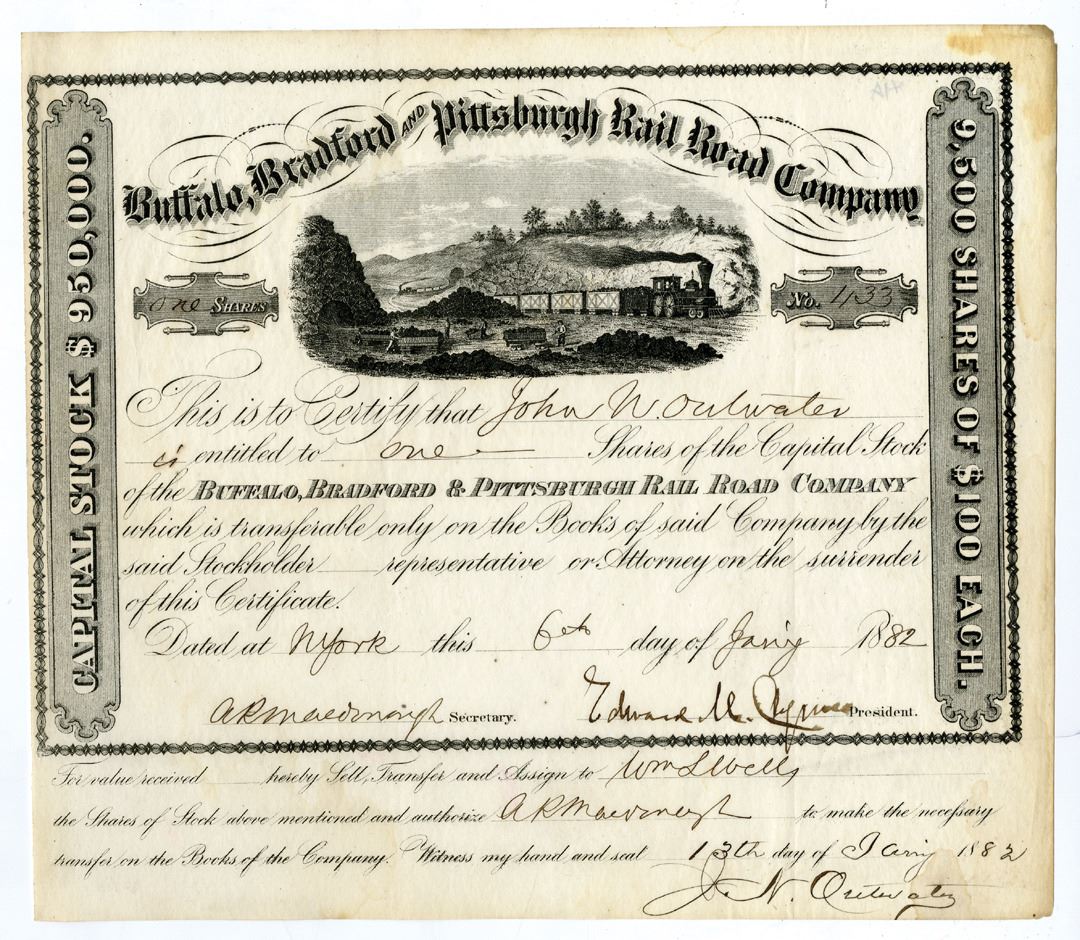 Buffalo, Bradford AND Pittsburgh Rail Road Company
CAPITAL STOCK $ 950,000.
9,500 SHARES OF $100 EACH.
One SHARES
No. 433
This is to Certify that John N Outwater
is entitled to one Shares of the Capital Stock
of the BUFFALO, BRADFORD & PITTSBURGH RAIL ROAD COMPANY
which is transferable only on the Books of said Company by the
said Stockholder representative or Attorney on the surrender
of this Certificate.
Dated at NYork this 6th day of Jany 1882
A R Macdonough Secretary.
Edward M. President.
For value received hereby Sell, Transfer and Assign to Wm L Wells
the Shares of Stock above mentioned and authorize A R Macdonough to make the necessary
transfer on the Books of the Company. Witness my hand and seal 13th day of Jany 1882
J. N. Outwater